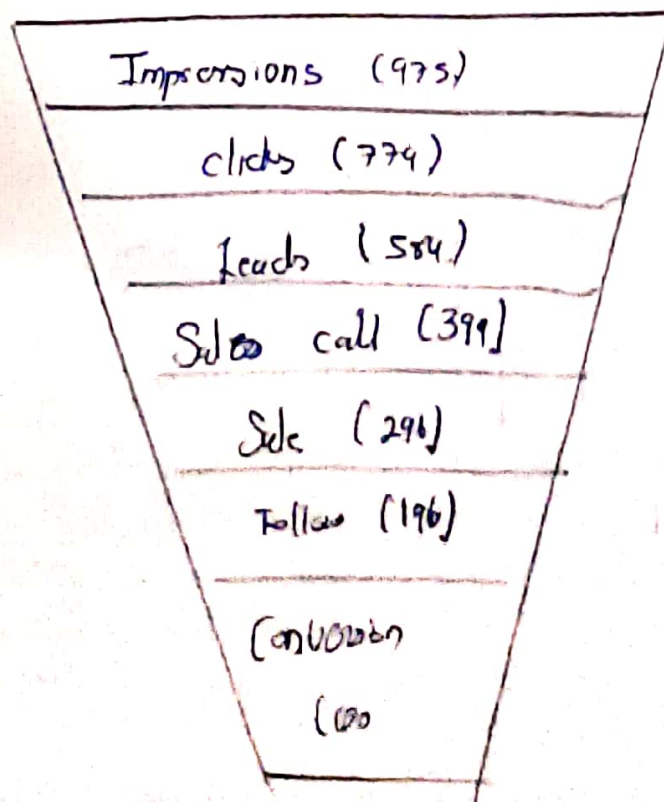 Impressions (975)
clicks (774)
Leads (584)
Sales call (399)
Sale (296)
Follow (196)
Conversion